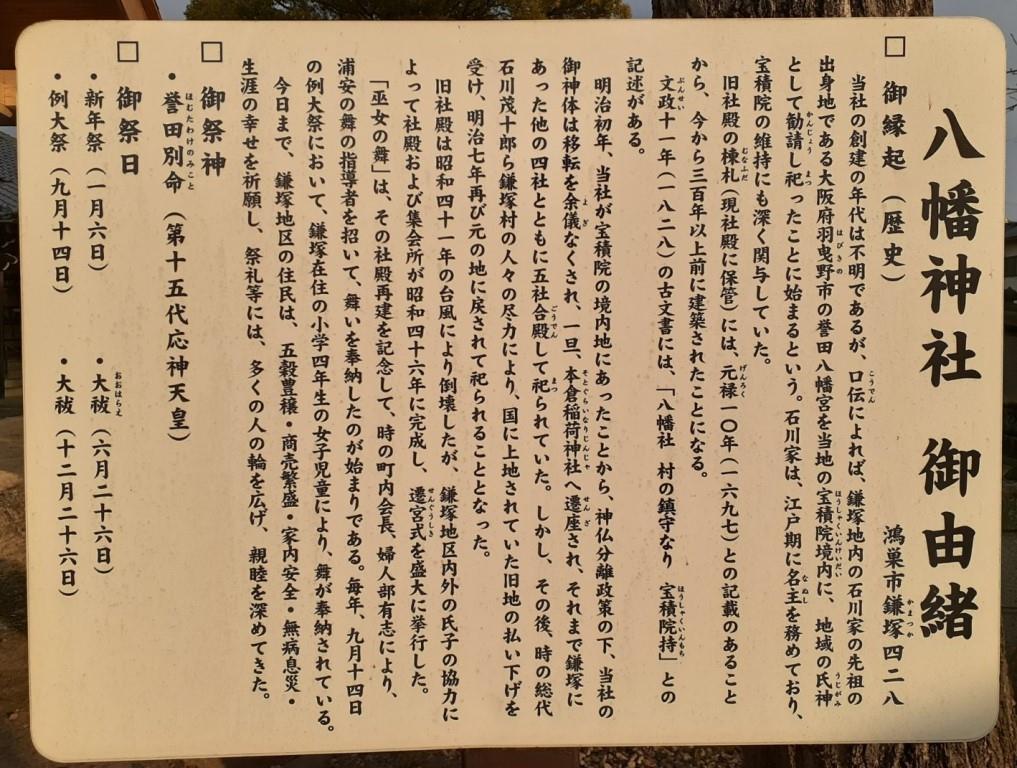 八幡神社 御由緒
鴻巣市鎌塚四二八
□ 御縁起(歴史)
当社の創建の年代は不明であるが、口伝によれば、鎌塚地内の石川家の先祖の
出身地である大阪府羽曳野市の誉田八幡宮を当地の宝積院境内に、地域の氏神
として勧請し祀ったことに始まるという。石川家は、江戸期に名主を務めており、
宝積院の維持にも深く関与していた。
旧社殿の棟札(現社殿に保管)には、元禄一〇年(一六九七)との記載のあること
から、今から三百年以上前に建築されたことになる。
文政十一年(一八二八)の古文書には、「八幡社 村の鎮守なり 宝積院持」との
記述がある。
明治初年、当社が宝積院の境内地にあったことから、神仏分離政策の下、当社の
御神体は移転を余儀なくされ、一旦、本倉稲荷神社へ遷座され、それまで鎌塚に
あった他の四社とともに五社合殿して祀られていた。しかし、その後、時の総代
石川茂十郎ら鎌塚村の人々の尽力により、国に上地されていた旧地の払い下げを
受け、明治七年再び元の地に戻されて祀られることとなった。
旧社殿は昭和四十一年の台風により倒壊したが、鎌塚地区内外の氏子の協力に
よって社殿および集会所が昭和四十六年に完成し、遷宮式を盛大に挙行した。
「巫女の舞」は、その社殿再建を記念して、時の町内会長、婦人部有志により、
浦安の舞の指導者を招いて、舞いを奉納したのが始まりである。毎年、九月十四日
の例大祭において、鎌塚在住の小学四年生の女子児童により、舞が奉納されている。
今日まで、鎌塚地区の住民は、五穀豊穣・商売繁盛・家内安全・無病息災・
生涯の幸せを祈願し、祭礼等には、多くの人の輪を広げ、親睦を深めてきた。
□ 御祭神
・誉田別命(第十五代応神天皇)
□ 御祭日
・新年祭(一月六日) ・大祓(六月二十六日)
・例大祭(九月十四日) ・大祓(十二月二十六日)